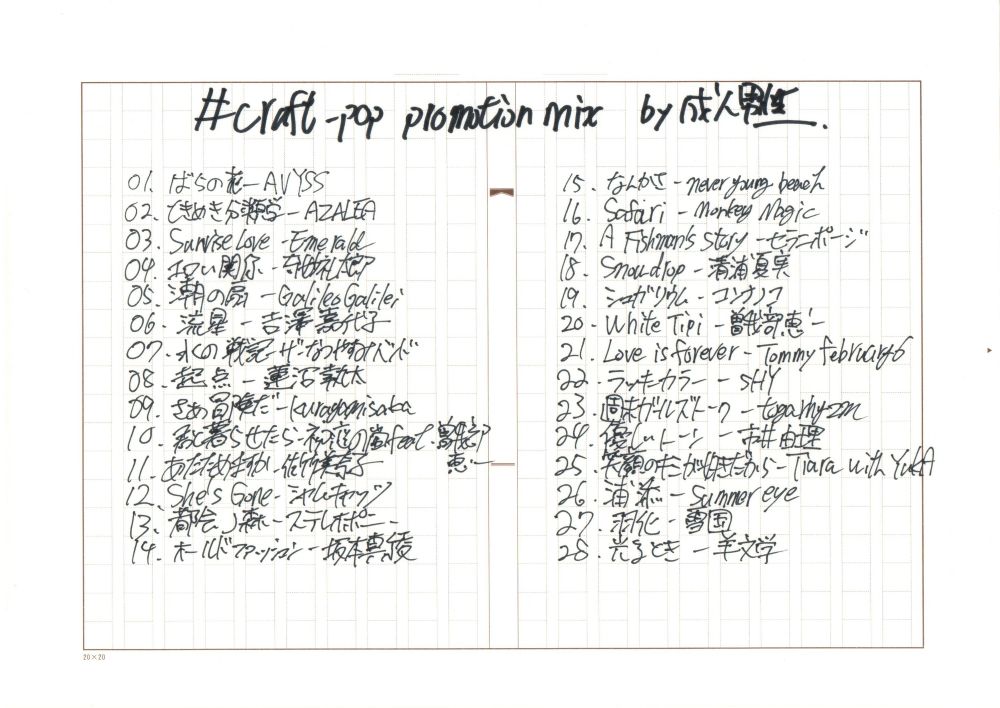 #craft-pop promotion mix by 成人男性.
01. ばらの花 - AVYSS
02. ときめき分類学 - AZALEA
03. Sunrise Love - Emerald
04. 関係 -
05. 潮の扉 - Galileo Galilei
06. 流星 - 吉澤嘉代子
07. 水の戦記 - ザ・なつやすみバンド
08. 起点 - 蓮沼執太
09. さあ冒険だ - kuragamisaka
10. 着らせたら - feat. 曽我部
恵一
11. あたためますか - 佐竹美奈子
12. She's Gone - シャムキャッツ
13. 都会ノ森 - ステレオポニー
14. オールドファッション - 坂本真綾
15. なんかさ - never young beach
16. Safari - Monkey Magic
17. A Fishman's Story - セラニポージ
18. Snowdrop - 清浦夏実
19. シュガリウム - コンナノコ
20. White Tipi - 曽我部恵一
21. Love is forever - Tommy february6
22. ラッキーカラー - SHY
23. 週末ガールズトーク -
24. 優しいトーン - 市井由理
25. 笑顔のキミが好きだから - Tiara with YukA
26. 浦添 - summer eye
27. 羽化 - 雪国
28. 光るとき - 羊文学
20×20